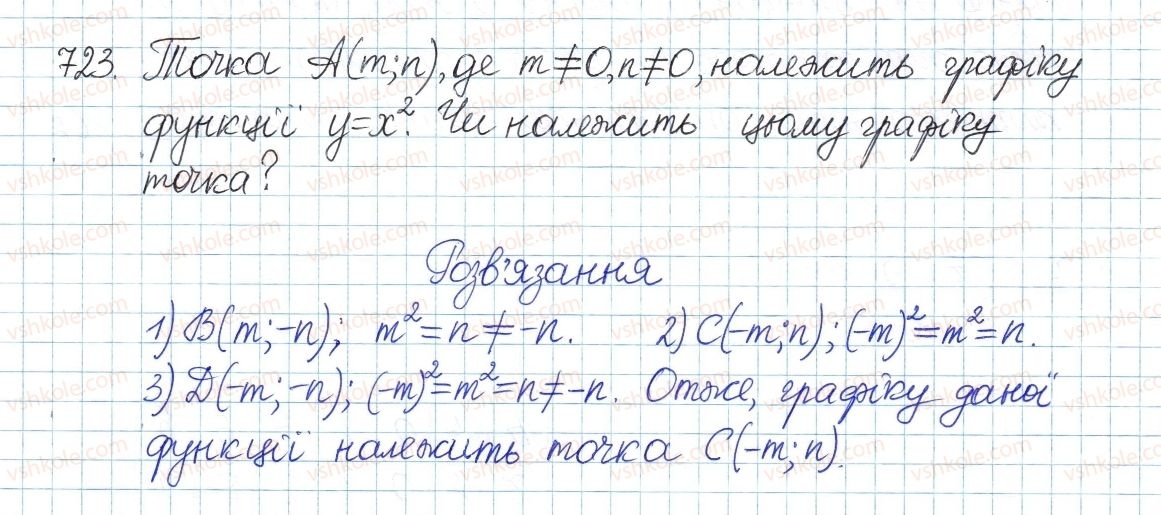 723. Точка A(m;n), де m≠0, n≠0, належить графіку
функції y=x². Чи належить цьому графіку
точка?
Розв'язання
1) B(m;-n); m²=n≠-n. 2) C(-m;n); (-m)²=m²=n.
3) D(-m;-n); (-m)²=m²=n≠-n. Отже, графіку даної
функції належить точка C(-m;n).
vshkole.com